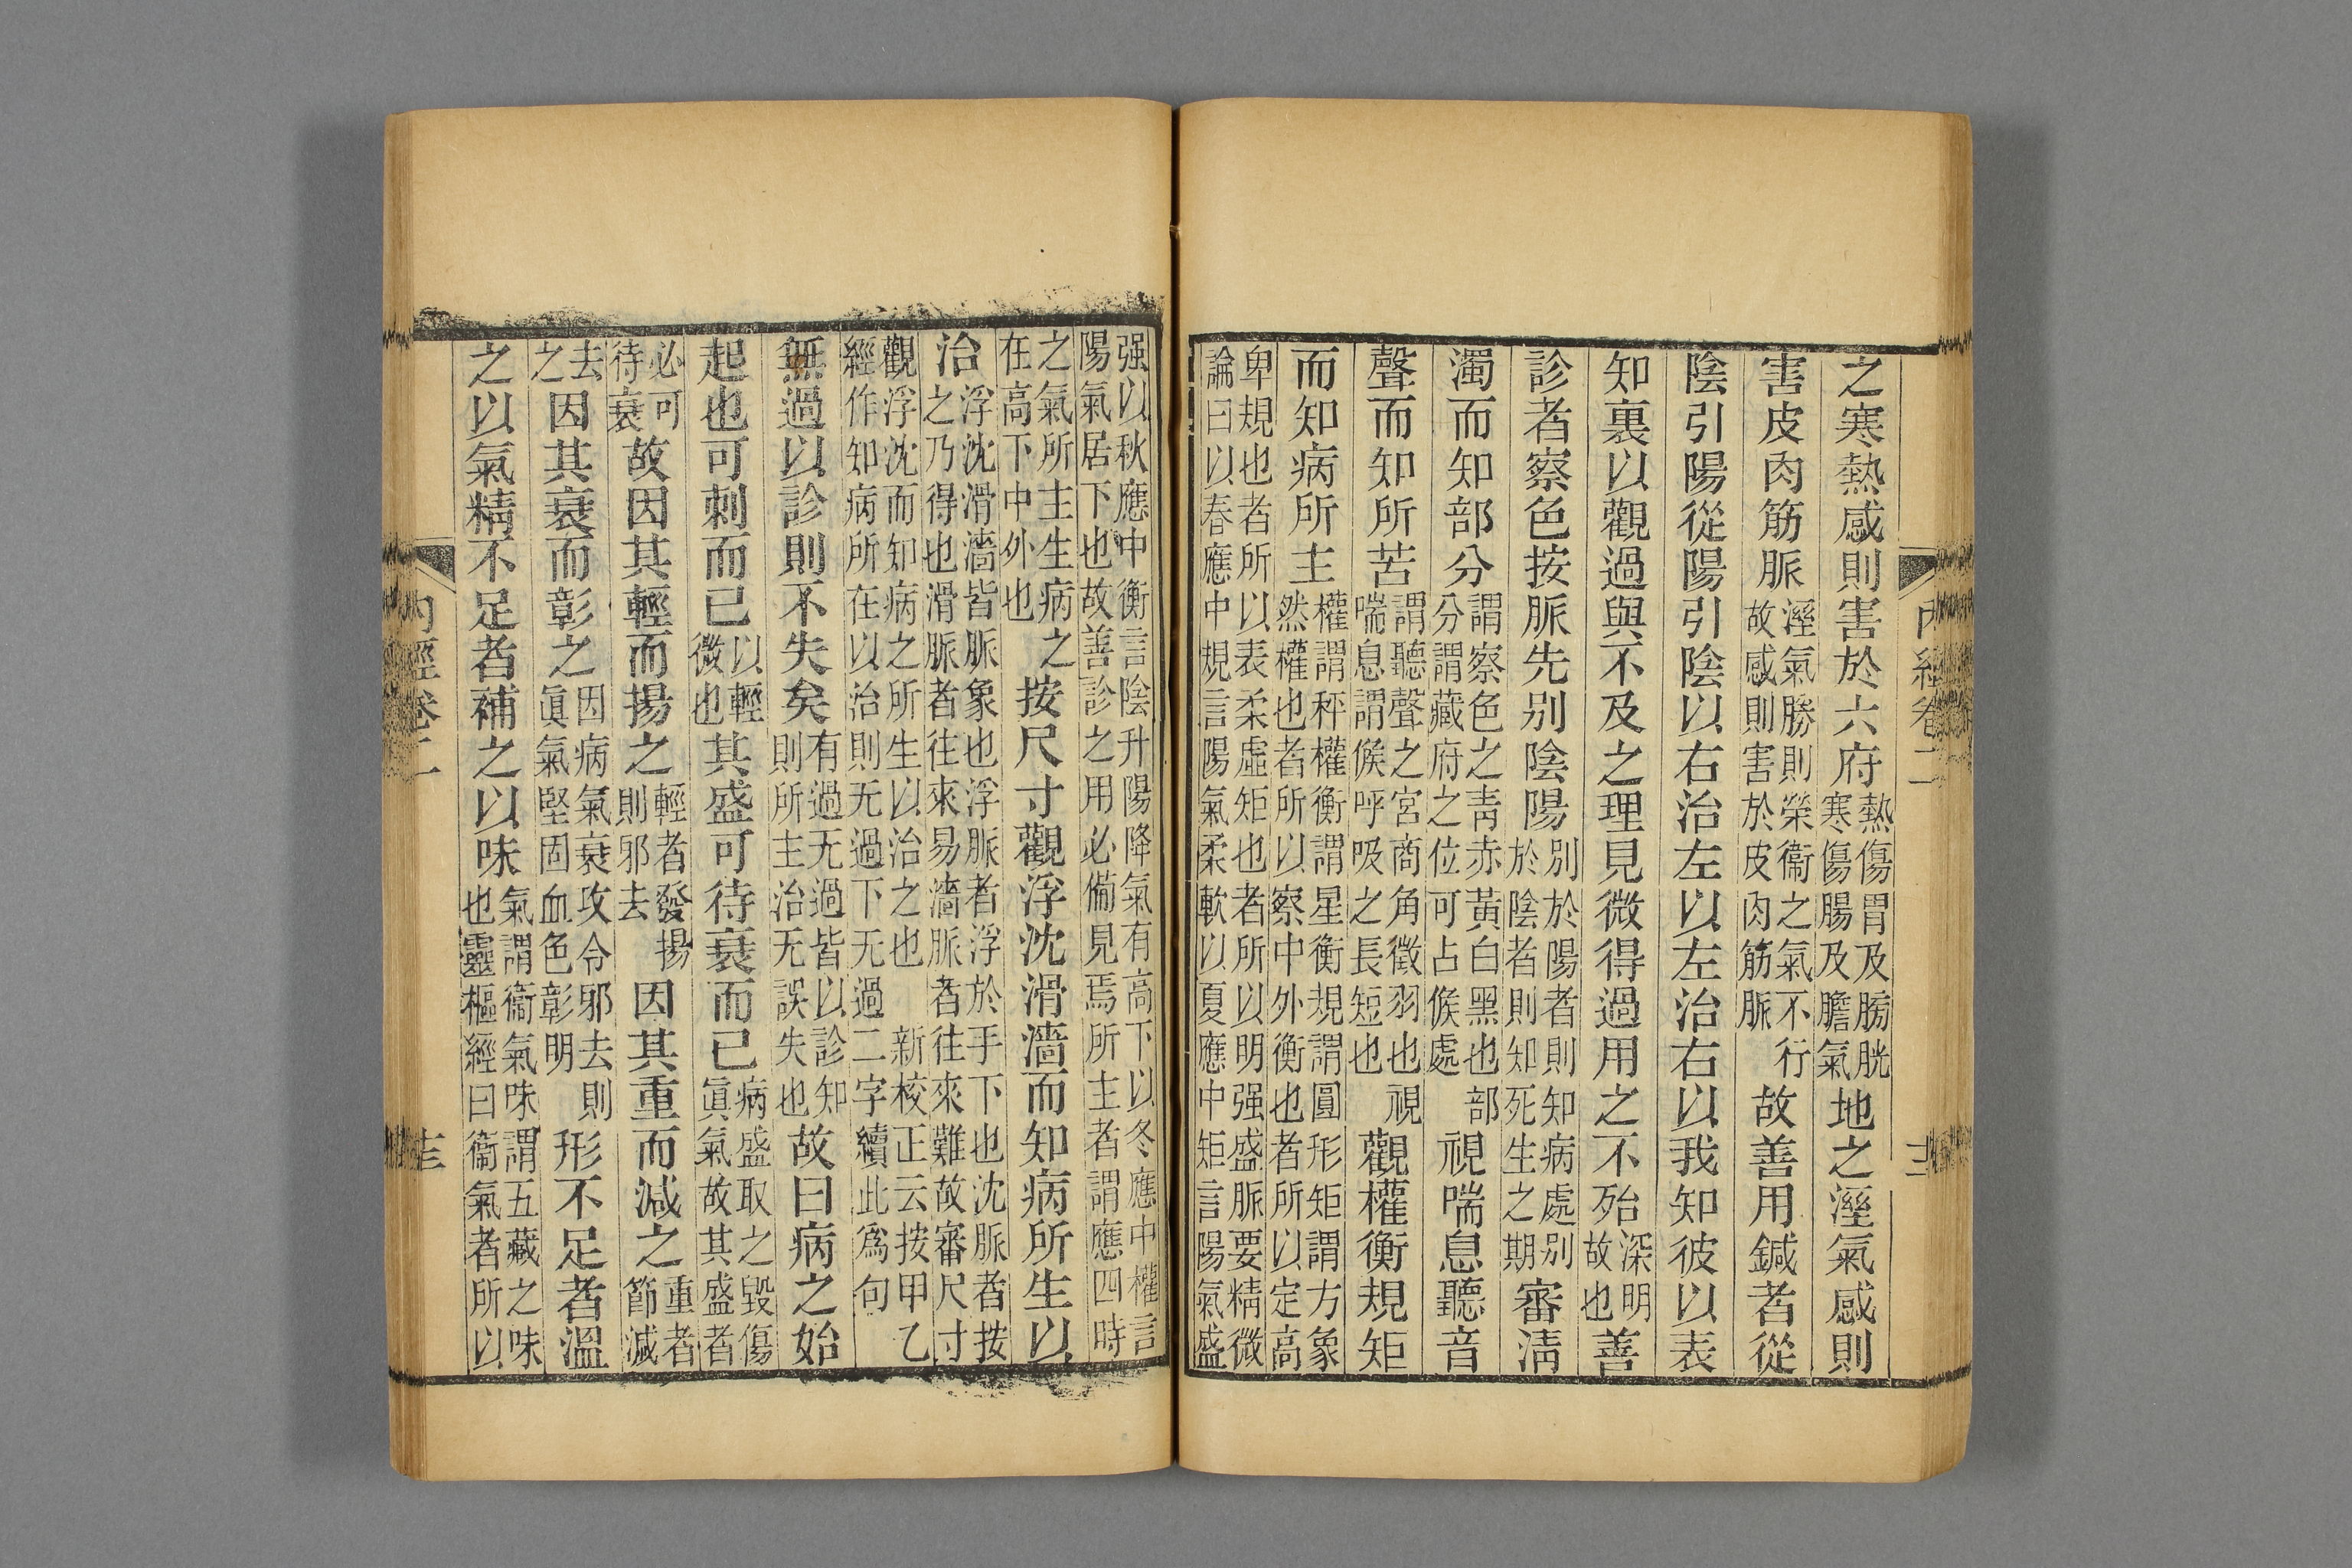 內經卷二
之寒熱感則害於六府熱傷胃及膀胱寒傷腸及膽氣地之溼氣感則
害皮肉筋脈溼氣勝則榮衞之氣不行故感則害於皮肉筋脈故善用鍼者從
陰引陽從陽引陰以右治左以左治右以我知彼以表
知裏以觀過與不及之理見微得過用之不殆深明故也善
診者察色按脈先别陰陽別於陽者則知病處别於陰者則知死生之期審淸
濁而知部分謂察色之靑赤黃白黑也部分謂藏府之位可占候處視喘息聽音
聲而知所苦謂聽聲之宮商角徵羽也視喘息謂候呼吸之長短也觀權衡規矩
而知病所主權謂秤權衡謂星衡規謂圓形矩謂方象然權也者所以察中外衡也者所以定高
卑規也者所以表柔虛矩也者所以明强盛脈要精微論曰以春應中規言陽氣柔軟以夏應中矩言陽氣盛
强以秋應中衡言陰升陽降氣有高下以冬應中權言陽氣居下也故善診之用必備見焉所主者謂應四時
之氣所主生病之在高下中外也按尺寸觀浮沈滑濇而知病所生以
治浮沈滑濇皆脈象也浮脈者浮於手下也沈脈者按之乃得也滑脈者往來易濇脈者往來難故審尺寸
觀浮沈而知病之所生以治之也新校正云按甲乙經作知病所在以治則无過下无過二字續此爲句
無過以診則不失矣有過无過皆以診知則所主治无誤失也故曰病之始
起也可刺而已以輕微也其盛可待衰而已病盛取之毀傷眞氣故其盛者
必可待衰故因其輕而揚之輕者發揚則邪去因其重而減之重者節減
去之因其衰而彰之因病氣衰攻令邪去則眞氣堅固血色彰明形不足者溫
之以氣精不足者補之以味氣謂衞氣味謂五藏之味也靈樞經曰衞氣者所以
內經卷二